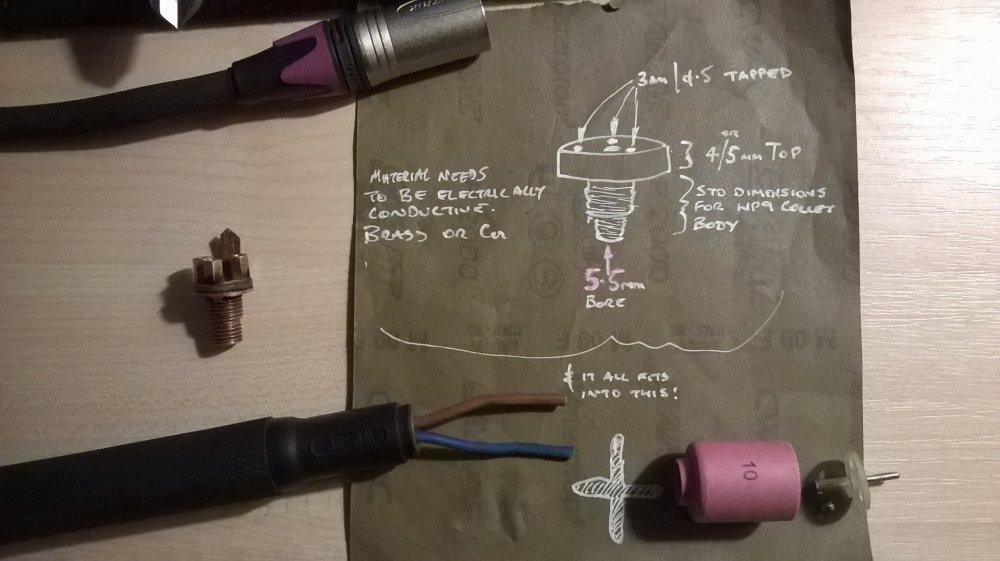 3mm/4.5 TAPPED
OR
4/5mm TOP
MATERIAL NEEDS
TO BE ELECTRICALLY
CONDUCTIVE.
BRASS OR Cu
STD DIMENSIONS
FOR WP9 COLLET
BODY
5.5mm
BORE
& IT ALL FITS
INTO THIS!
10